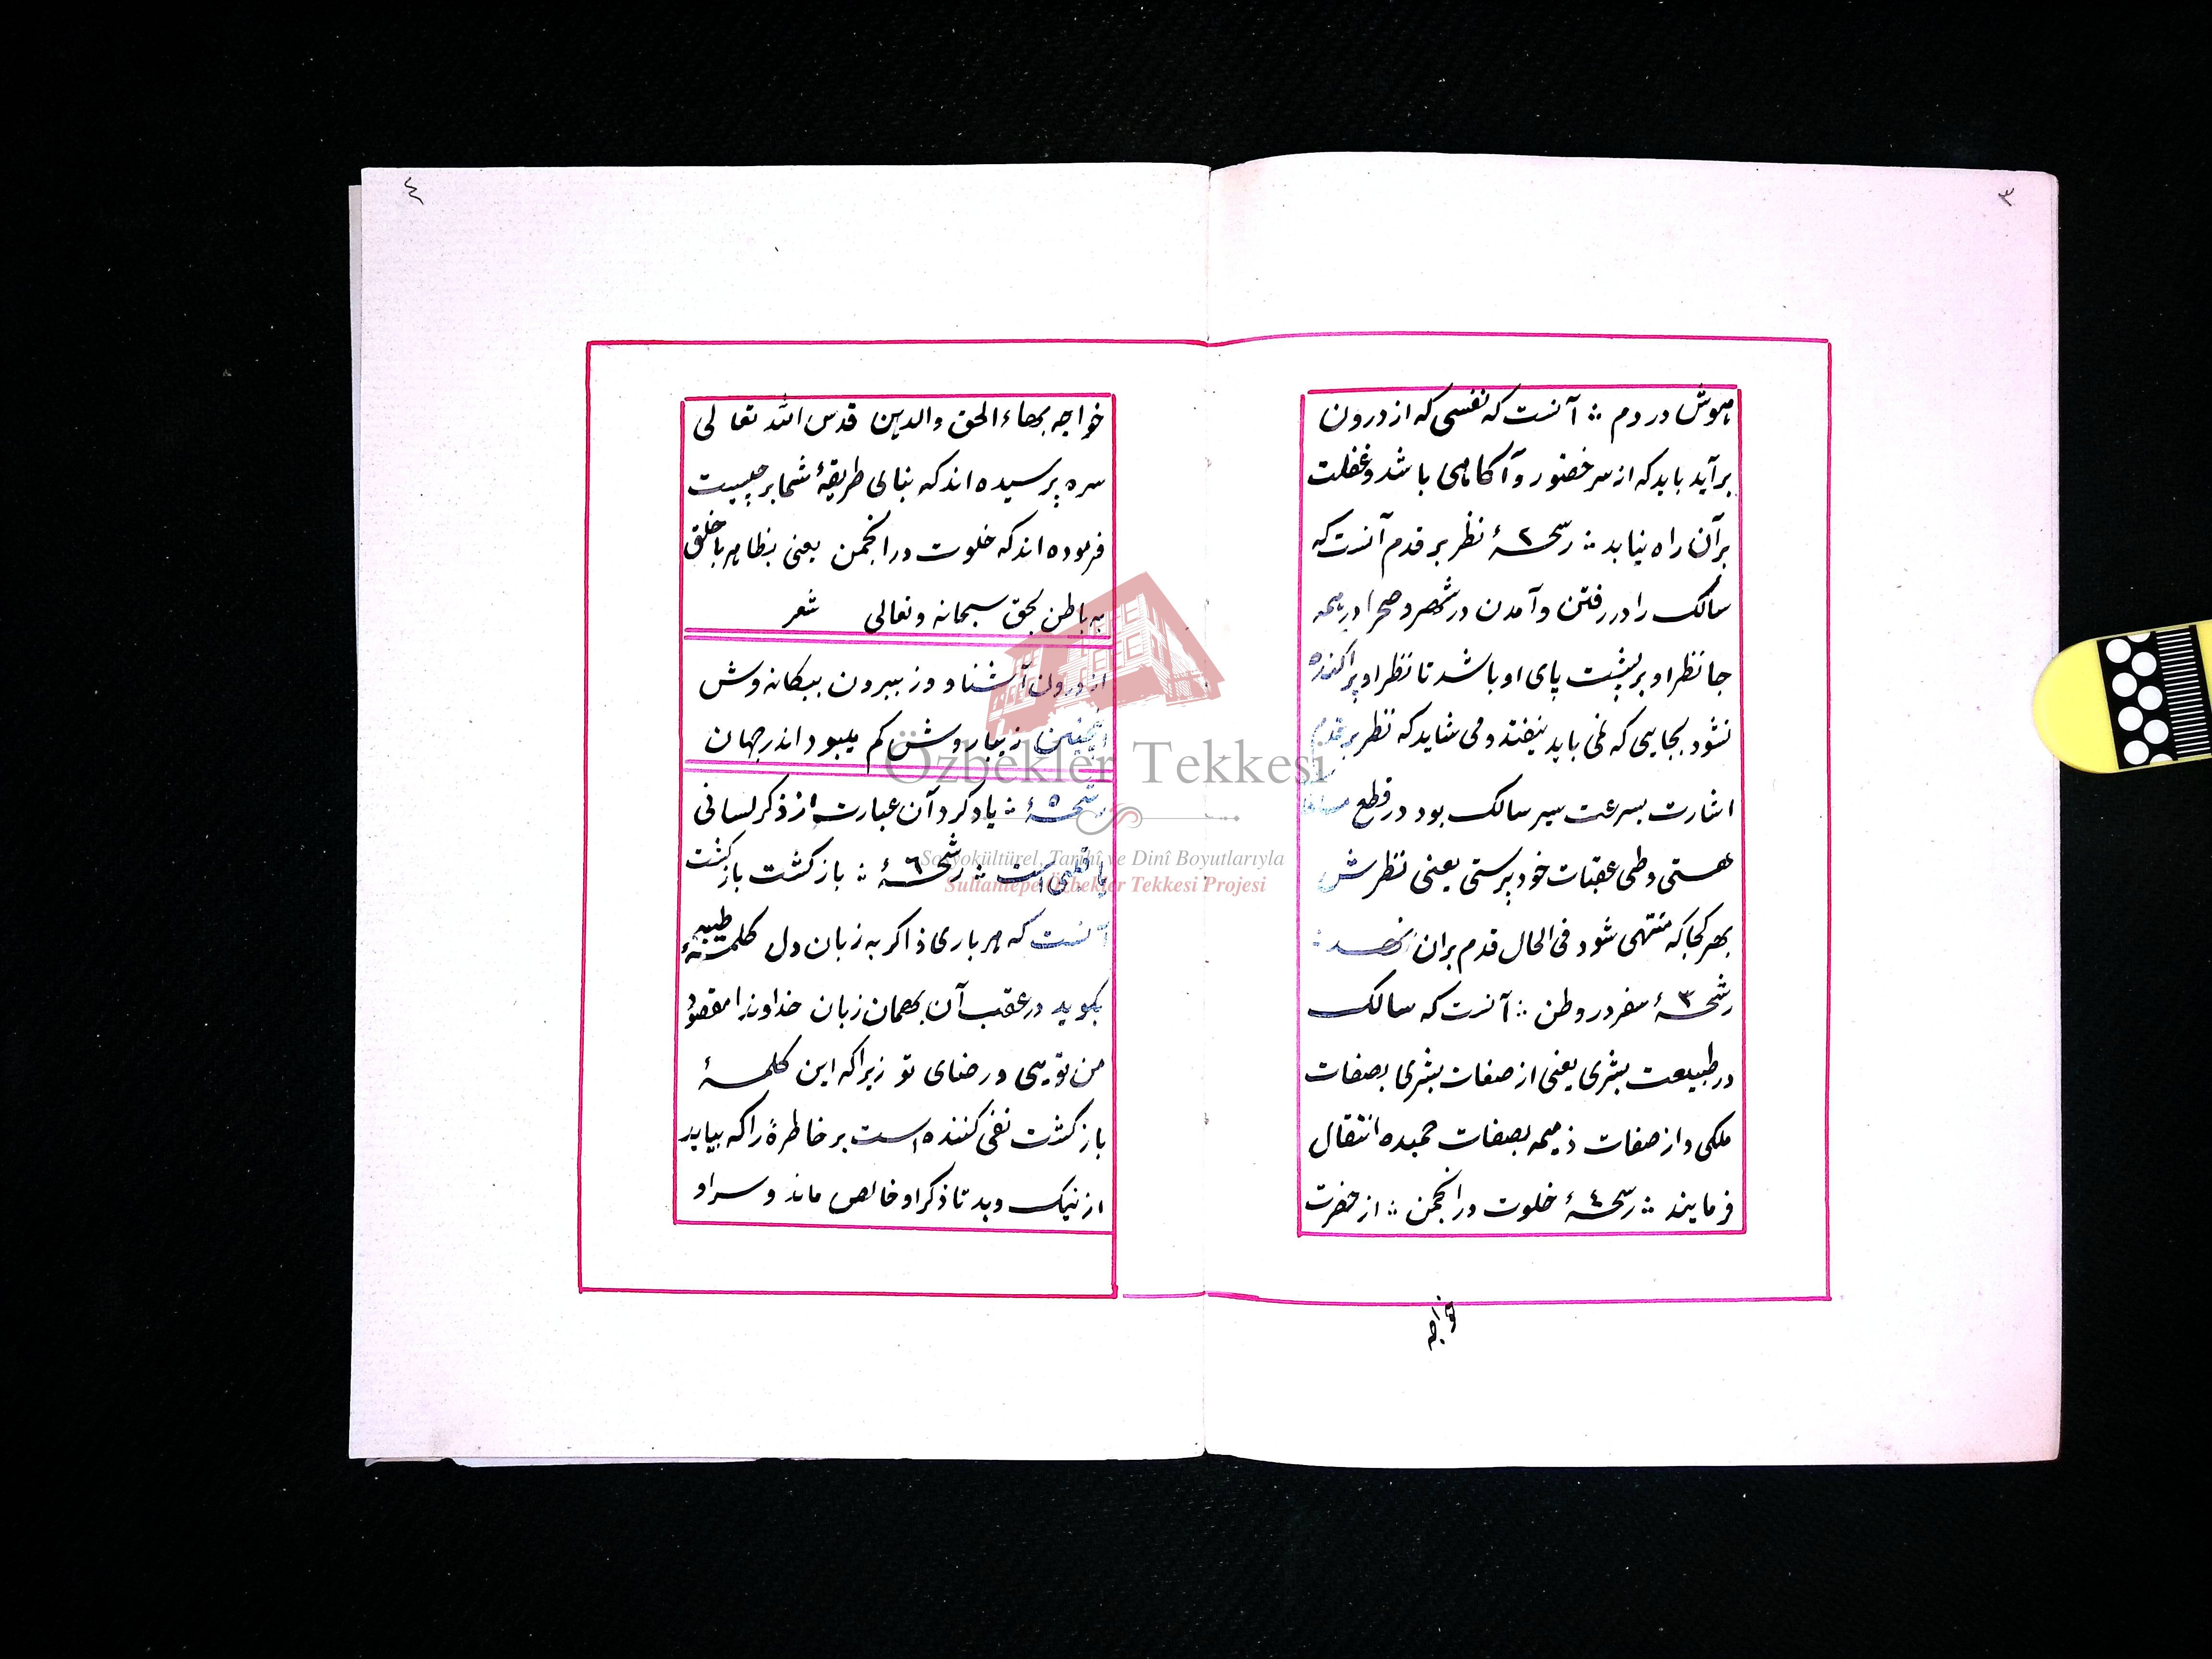 ٣
هوش در دم ⁘ آنست که نفسی که از درون
برآید باید که از سر حضور و آکاهی باشد و غفلت
برآن راه نیابد ⁘ رشحهٔ ٢ نظر بر قدم آنست که
سالک را در رفتن و آمدن در شهر و صحرا در همه
جا نظر او بر پشت پای او باشد تا نظر او پراکنده
نشود بجایی که نمی باید نیفتد و می شاید که نظر بر قدم
اشارت بسرعت سیر سالک بود در قطع
هستی و طی عقبات خود پرستی یعنی نظرش
بهر کجا که منتهی شود فی الحال قدم بران نهد ⁘
رشحهٔ ٣ سفر در وطن ⁘ آنست که سالک
در طبیعت بشری یعنی از صفات بشری بصفات
ملکی و از صفات ذمیمه بصفات حمیده انتقال
فرمایند ⁘ رشحهٔ ٤ خلوت در انجمن ⁘ از حضرت
خواجه
٤
خواجه بهاء الحق والدین قدس الله تعالی
سره پرسیده اند که بنای طریقهٔ شما بر چیست
فرموده اند که خلوت در انجمن یعنی بظاهر با خلق
به باطن بحق سبحانه و تعالی شعر
از درون آشنا و وز بیرون بیکانه وش
اینچنین زیبا روش کم میبود اندر جهان
رشحهٔ ٥ ⁘ یاد کرد آن عبارت از ذکر لسانی
یا قلبی است ⁘ رشحهٔ ٦ ⁘ باز کشت باز کشت
آنست که هر باری ذاکر به زبان دل کلمهٔ طیبه
بکوید در عقب آن بهمان زبان خداوندا مقصود
من تویی و رضای تو زیرا که این کلمهٔ
باز کشت نفی کننده است بر خاطرهٔ را که بیاید
از نیک و بد تا ذکر او خالص ماند و سر او
Özbekler Tekkesi
Sosyokültürel, Tarihî ve Dinî Boyutlarıyla
Sultantepe Özbekler Tekkesi Projesi